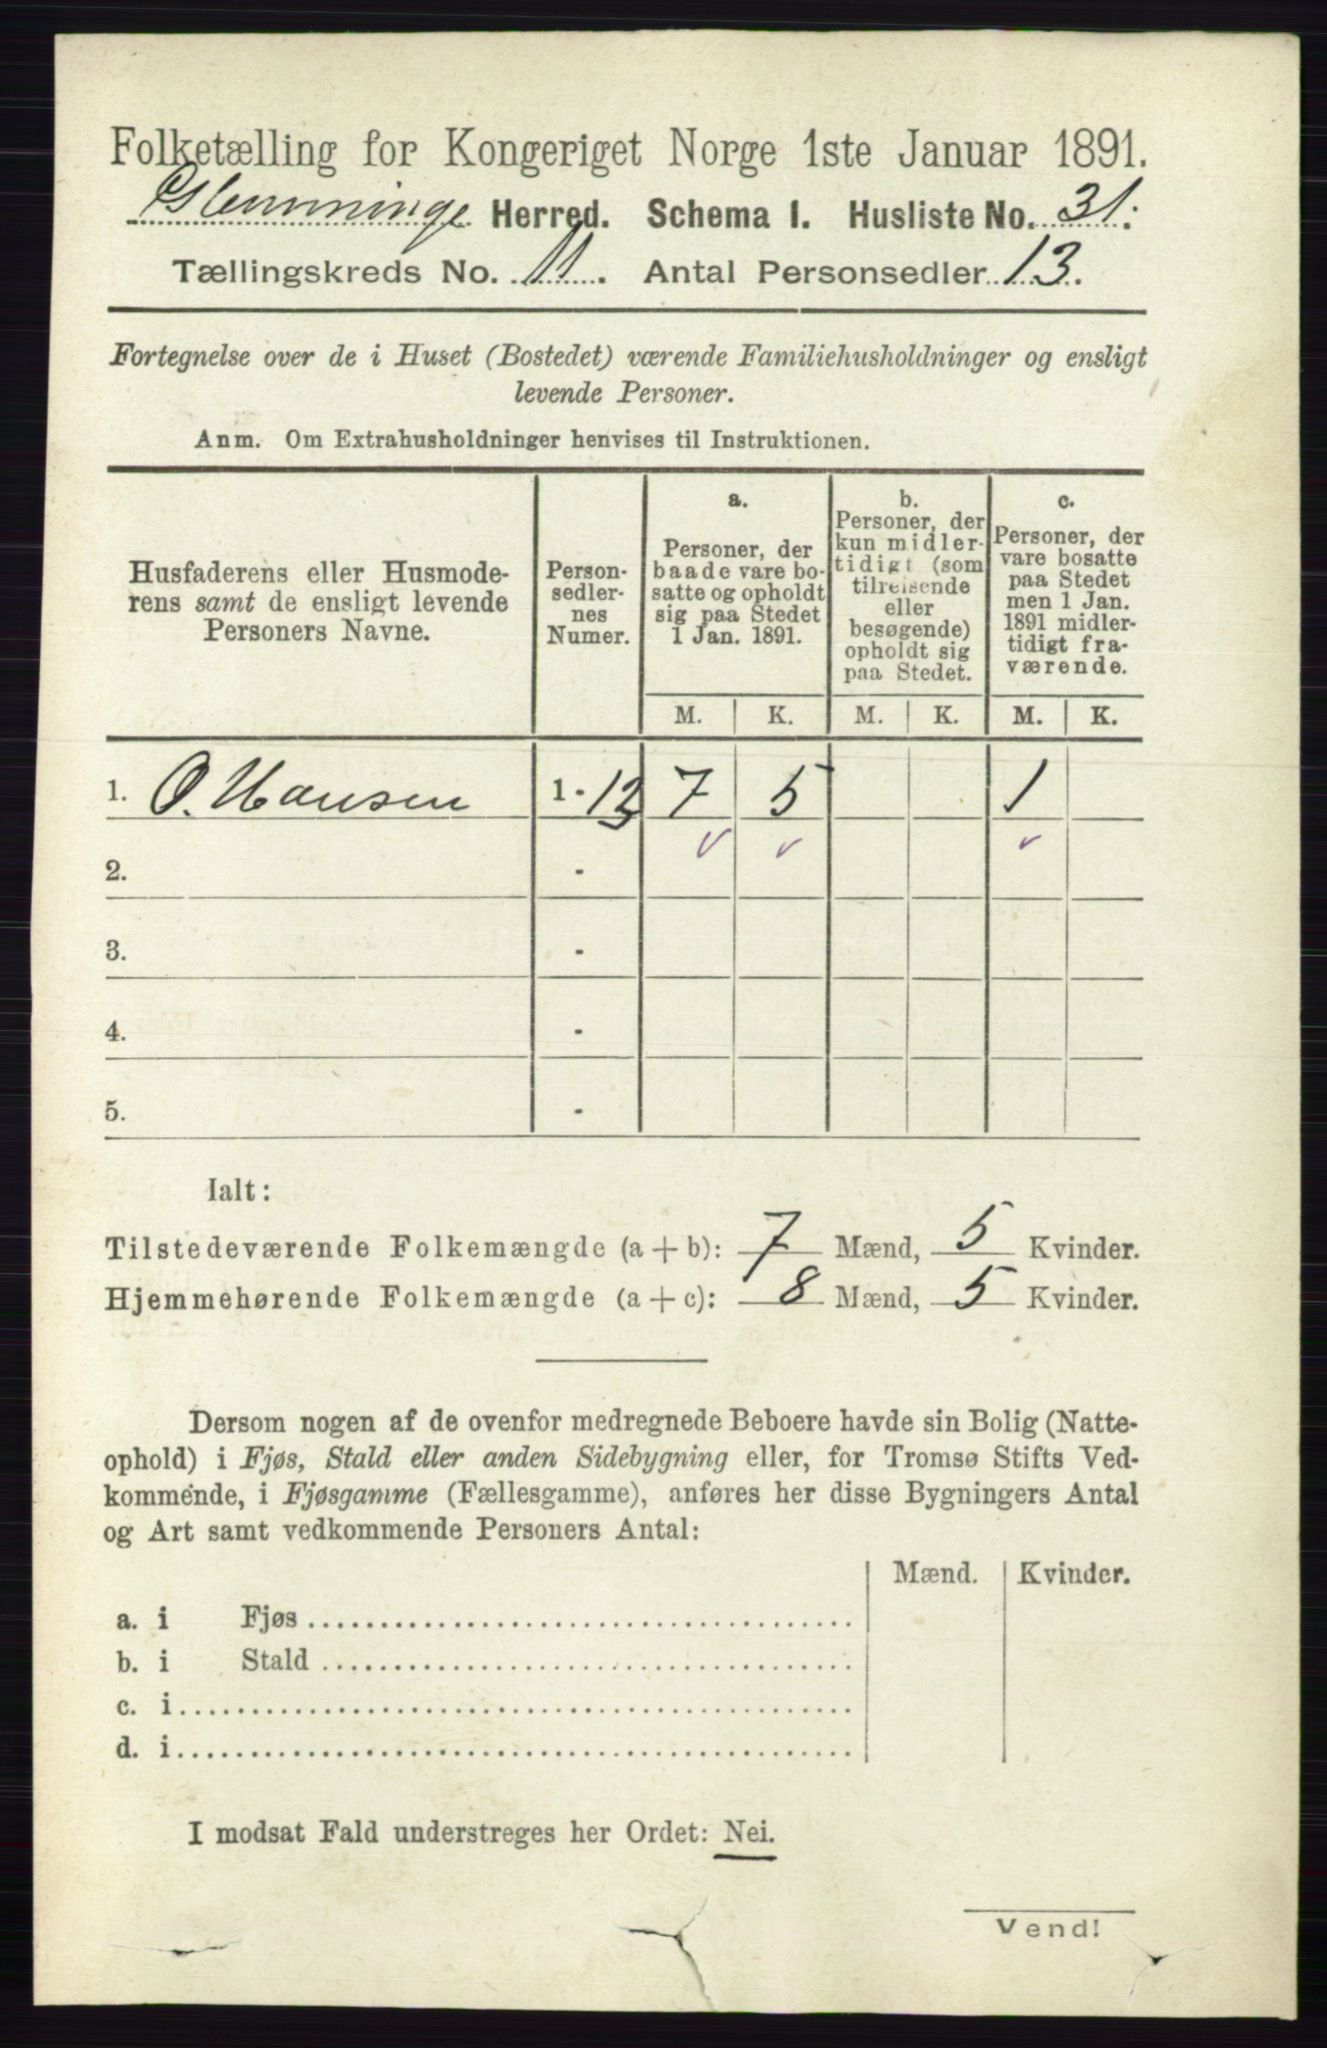 Folketælling for Kongeriget Norge 1ste Januar 1891.
Glemminge Herred. Schema I. Husliste No. 31.
Tællingskreds No. 11. Antal Personsedler 13.
Fortegnelse over de i Huset (Bostedet) værende Familiehusholdninger og ensligt
levende Personer.
Anm. Om Extrahusholdninger henvises til Instruktionen.
Husfaderens eller Husmode-
rens samt de ensligt levende
Personers Navne.
Person-
sedler-
nes
Numer.
a.
Personer, der
baade vare bo-
satte og opholdt
sig paa Stedet
1 Jan. 1891.
b.
Personer, der
kun midler-
tidigt (som
tilreisende
eller
besøgende)
opholdt sig
paa Stedet.
c.
Personer, der
vare bosatte
paa Stedet
men 1 Jan.
1891 midler-
tidigt fra-
værende.
M. K. M. K. M. K.
1. O. Hansen 1 - 13 7 5 1
2. -
3. -
4. -
5. -
Ialt:
Tilstedeværende Folkemængde (a + b): 7 Mænd, 5 Kvinder.
Hjemmehørende Folkemængde (a + c): 8 Mænd, 5 Kvinder.
Dersom nogen af de ovenfor medregnede Beboere havde sin Bolig (Natte-
ophold) i Fjøs, Stald eller anden Sidebygning eller, for Tromsø Stifts Ved-
kommende, i Fjøsgamme (Fællesgamme), anføres her disse Bygningers Antal
og Art samt vedkommende Personers Antal:
Mænd. Kvinder.
a. i Fjøs
b. i Stald
c. i
d. i
I modsat Fald understreges her Ordet: Nei.
Vend!